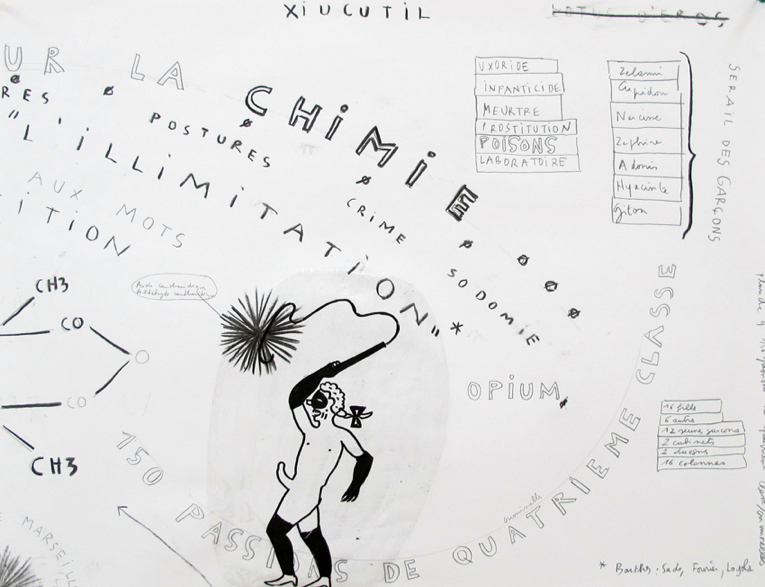 XIUCUTIL
LOTUS D'EROS
UR LA CHIMIE
RES ø POSTURES ø CRIME ø SODOMIE
"L'ILLIMITATION"*
AUX MOTS
ITION
UXORIDE
INFANTICIDE
MEURTRE
PROSTITUTION
POISONS
LABORATOIRE
Zelamir
Cupidon
Narcisse
Zéphire
Adonis
Hyacinthe
Giton
SERAIL DES GARÇONS
CH3
CO
O
CO
CH3
OPIUM
150 PASSIONS DE QUATRIEME CLASSE
criminelle
MARSEILL
16 filles
12 jeunes garcons
2 cabinets
16 colonnes
* Barthes. Sade, Fourier, Loyola